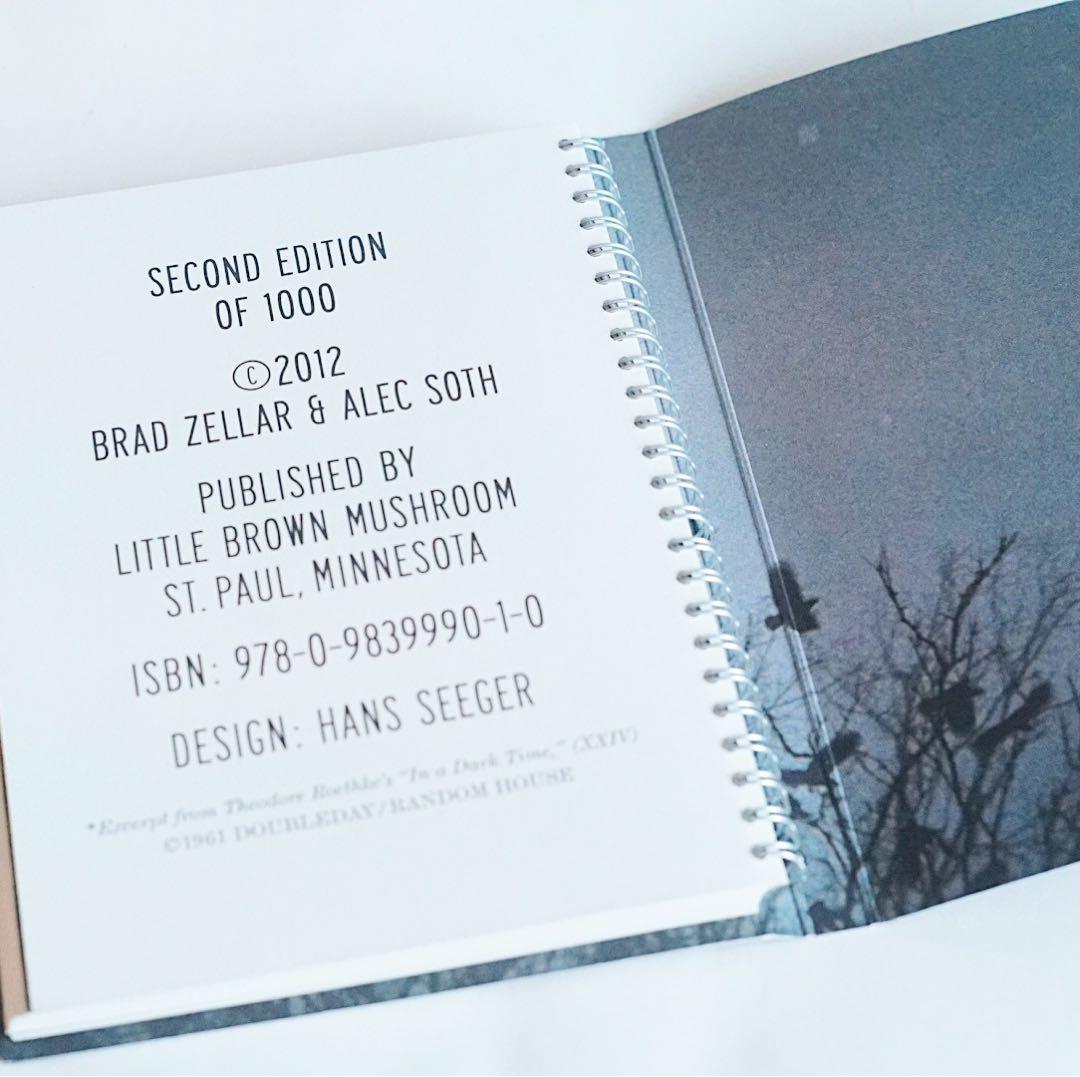 SECOND EDITION
OF 1000
©2012
BRAD ZELLAR & ALEC SOTH
PUBLISHED BY
LITTLE BROWN MUSHROOM
ST. PAUL, MINNESOTA
ISBN: 978-0-9839990-1-0
DESIGN: HANS SEEGER
*Excerpt from Theodore Roethke's "In a Dark Time," (XXIV)
©1961 DOUBLEDAY/RANDOM HOUSE